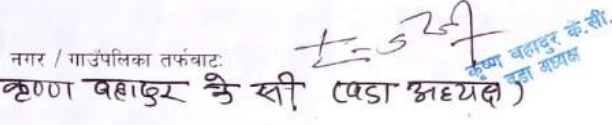 नगर / गाउँपालिका तर्फबाटः
कृष्ण बहादुर के.सी.
वडा अध्यक्ष
कृष्ण बहादुर के सी (वडा अध्यक्ष)